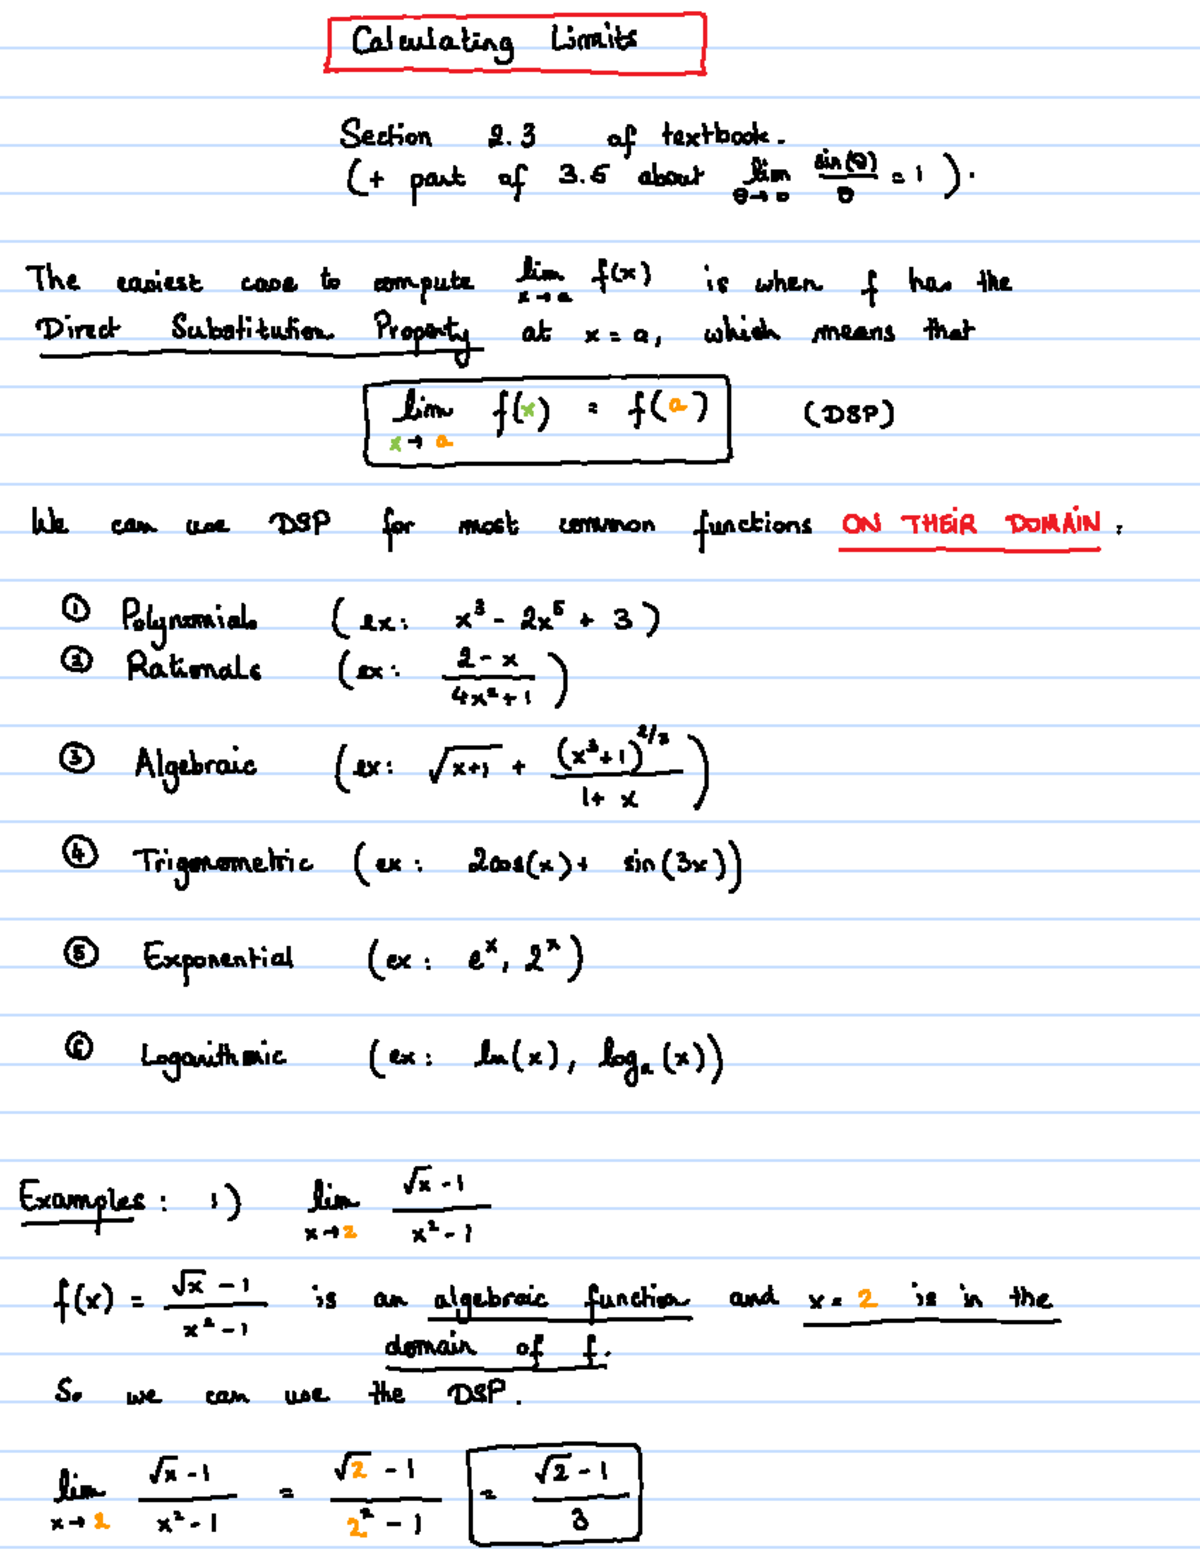 Calculating Limits
Section 2.3 of textbook.
(+ part of 3.5 about lim θ→0 sin(θ)/θ = 1).
The easiest case to compute lim x→a f(x) is when f has the
Direct Substitution Property at x = a, which means that
lim x→a f(x) = f(a) (DSP)
We can use DSP for most common functions ON THEiR DOMAiN :
① Polynomials (ex: x³ - 2x⁵ + 3)
② Rationals (ex: (2 - x)/(4x² + 1))
③ Algebraic (ex: √(x+1) + (x³+1)^(2/3)/(1+ x))
④ Trigonometric (ex: 2cos(x) + sin(3x))
⑤ Exponential (ex: eˣ, 2ˣ)
⑥ Logarithmic (ex: ln(x), logₐ(x))
Examples: 1) lim x→2 (√x - 1)/(x² - 1)
f(x) = (√x - 1)/(x² - 1) is an algebraic function and x = 2 is in the
domain of f.
So we can use the DSP.
lim x→2 (√x - 1)/(x² - 1) = (√2 - 1)/(2² - 1) = (√2 - 1)/3